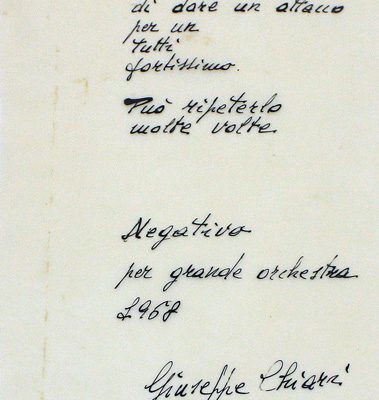 di dare un attacco
per un
tutti
fortissimo.
Può ripeterlo
molte volte
Negativo
per grande orchestra
1968
Giuseppe Chiari